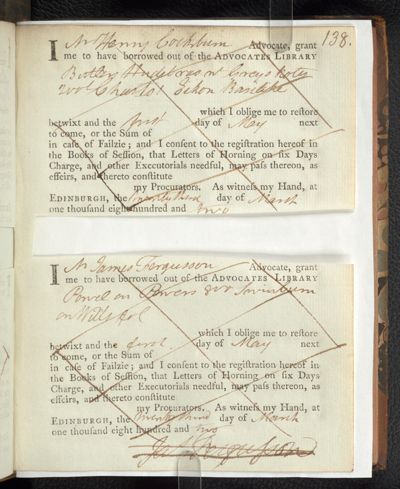 138.
I Mr Henry Cockburn Advocate, grant
me to have borrowed out of the ADVOCATES LIBRARY
Butlers Hudibras wt Greys Notes
2 vol Charles
which I oblige me to reſtore
betwixt and the firſt day of May next
to come, or the Sum of
in caſe of Failzie; and I conſent to the regiſtration hereof in
the Books of Seſſion, that Letters of Horning on ſix Days
Charge, and other Executorials needful, may paſs thereon, as
effeirs, and thereto conſtitute
my Procurators. As witneſs my Hand, at
EDINBURGH, the twenty third day of March
one thouſand eight hundred and two
I Mr James Fergusson Advocate, grant
me to have borrowed out of the ADVOCATES LIBRARY
Powel on Powers 8vo Swinburn
on Wills fol
which I oblige me to reſtore
betwixt and the first day of May next
to come, or the Sum of
in caſe of Failzie; and I conſent to the regiſtration hereof in
the Books of Seſſion, that Letters of Horning on ſix Days
Charge, and other Executorials needful, may paſs thereon, as
effeirs, and thereto conſtitute
my Procurators. As witneſs my Hand, at
EDINBURGH, the twenty third day of March
one thouſand eight hundred and two
Ja. Fergusson